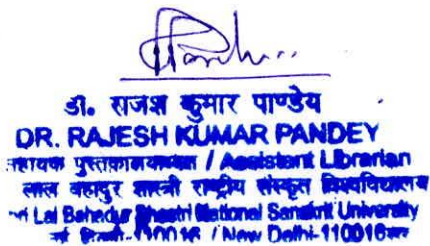 डा. राजेश कुमार पाण्डेय
DR. RAJESH KUMAR PANDEY
पुस्तकालयाध्यक्ष / Assistant Librarian
लाल बहादुर शास्त्री राष्ट्रीय संस्कृत विश्वविद्यालय
Lal Bahadur Shastri National Sanskrit University
110016 / New Delhi-110016